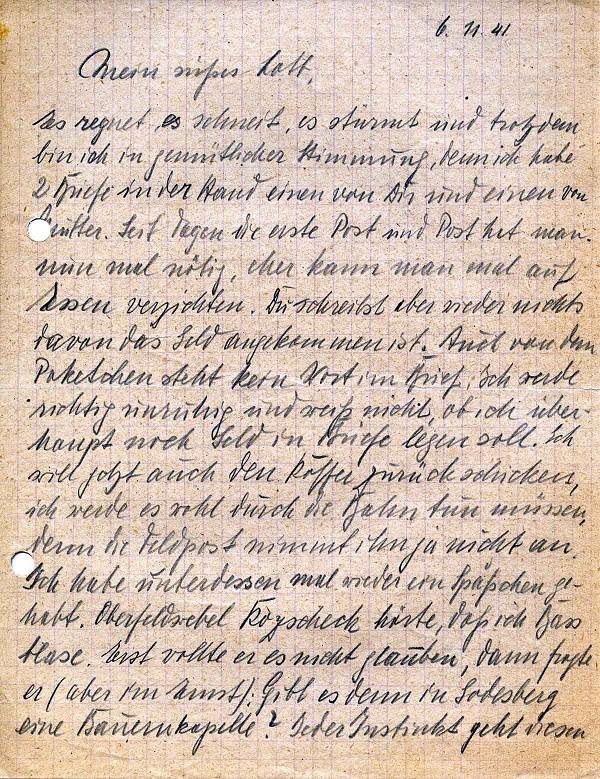 6. 11. 41
Mein süßes Lott,
Es regnet, es schneit, es stürmt und trotzdem
bin ich in gemütlicher Stimmung, denn ich habe
2 Briefe in der Hand einen von Dir und einen von
Mutter. Seit Tagen die erste Post und Post hat man
nun mal nötig, eher kann man mal auf
Essen verzichten. Du schreibst aber wieder nichts
davon das Geld angekommen ist. Auch von den
Paketchen steht kein Wort im Brief, ich werde
richtig unruhig und weiß nicht, ob ich über-
haupt noch Geld in Briefe legen soll. Ich
will jetzt auch den Koffer zurück schicken,
ich werde es wohl durch die Bahn tun müssen,
denn die Feldpost nimmt ihn ja nicht an.
Ich habe unterdessen mal wieder ein Späßchen ge-
habt. Oberfeldwebel hörte, daß ich Bass
blase. Erst wollte er es nicht glauben, dann fragte
er (aber im Ernst): Gibt es denn in Godesberg
eine Bauernkapelle? Jeder Instinkt geht diesen